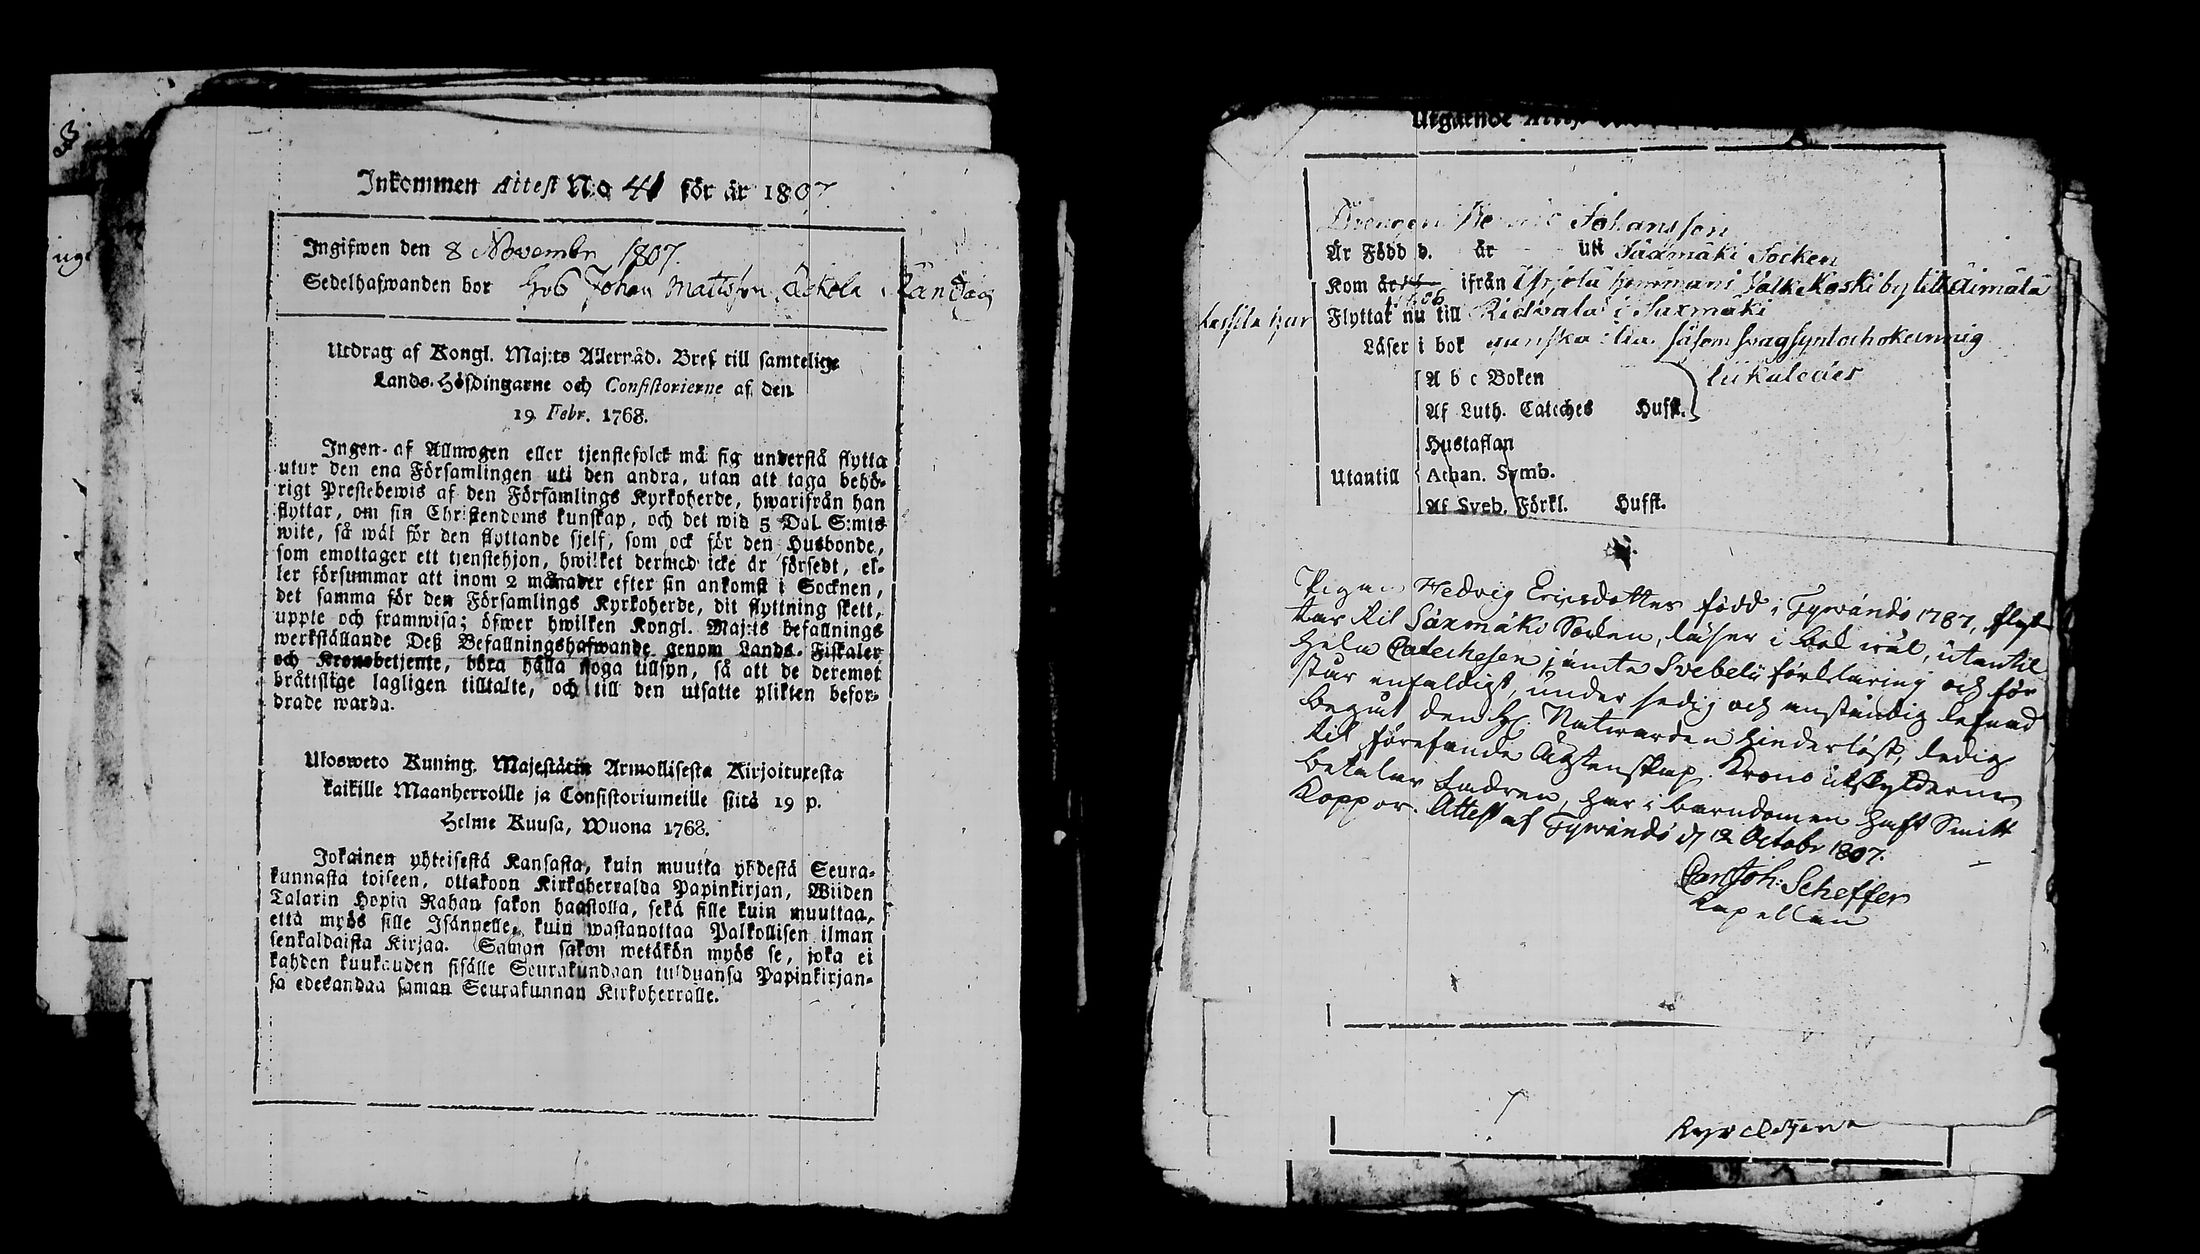 Inkommen Attest No 41 för år 1807
Ingifwen den 8 Novembr 1807.
Sedelhafwanden bor hos Johan Mattsson
Utdrag af Kongl. Maj:ts Allernåd. Bref till samtelige
Lands-Höfdingarne och Consistorierne af den
19 Febr. 1768.
Ingen af Allmogen eller tjenstefolck må sig understå flytta
utur den ena Församlingen uti den andra, utan att taga behö-
rigt Prestebewis af den Församlings Kyrkoherde, hwarifrån han
flyttar, om sin Christendoms kunskap, och det wid 5 Dal. S:mts
wite, så wäl för den flyttande sjelf, som ock för den Husbonde,
som emottager ett tjenstehjon, hwilket dermed icke är försedt, el-
ler försummar att inom 2 månader efter sin ankomst i Socknen,
det samma för den Församlings Kyrkoherde, dit flyttning skett,
upple och framwisa; öfwer hwilken Kongl. Maj:ts befallnings
werkställande Deß Befallningshafwande genom Lands-Fiskaler
och Kronobetjente, böra hålla noga tillsyn, så att de deremot
bråttslige lagligen tilltalte, och till den utsatte plikten befor-
drade warda.
Ulosweto Kuning. Majestätin Armollisesta Kirjoituxesta
kaikille Maanherroille ja Consistoriumeille siitä 19 p.
Helme Kuusa, Wuona 1768.
Jokainen yhteisestä Kansasta, kuin muutta yhdestä Seura-
kunnasta toiseen, ottakoon Kirkoherralda Papinkirjan, Wiiden
Talarin Hopia Rahan sakon haastolla, sekä sille kuin muuttaa,
että myös sille Isännelle, kuin wastanottaa Palkollisen ilman
senkaldaista Kirjaa. Saman sakon wetäkön myös se, joka ei
kahden kuukauden sisälle Seurakundaan tulduansa Papinkirjan-
sa edesandaa saman Seurakunnan Kirkoherralle.
Utgående
Drengen Johansson
Är Född d. år uti Sääxmäki Socken
Kom år ifrån hemmans by till
Flyttar nu till Ridvala i Saxmäki
Läser i bok såsom svagsynt och
A b c Boken
Af Luth. Catches Hufst.
Hustaflan
Utantill Athan. Symb.
Af Sveb. Förkl. Hufst.
Pigan Hedvig Ericsdotter född i Tyrwändö 1787, flyt-
tar til Säxmäki Socken, läser i bok wäl, utantil
hela Catechesen jämte Svebelii förklaring och för-
står enfaldigt, under sedig och anständig lefnad
begått den H. Nattvarden hinderlöst, ledig
til förefallande Äktenskap. Krono utskylderne
betalar Fadren, har i barndomen haft Smitt
Koppor. Attest af Tyrwändö d 12 Octobr 1807.
Carl Joh: Scheffer
Kapellan